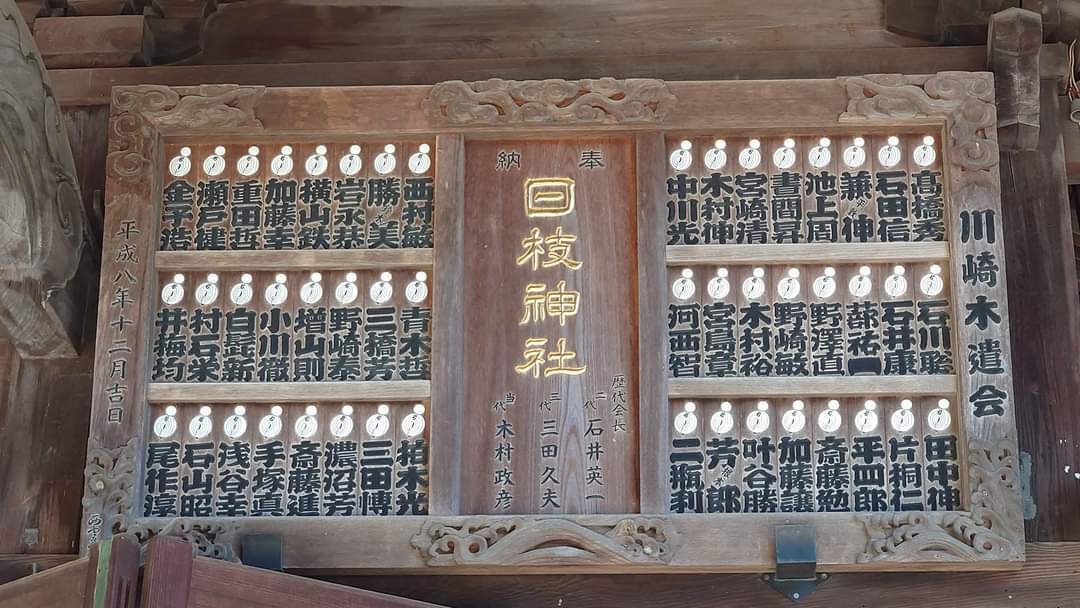 川崎木遣会
高橋秀
石田信
池上周
書間昇
宮崎清
木村神
中川光
石川聡
石井康
野澤直
野崎敏
木村裕
宮嶌章
河西智
田中神
片桐仁
平四郎
斎藤勉
加藤譲
叶谷勝
芳郎
二瓶利
奉納
日枝神社
歴代会長
二代 石井英一
三代 三田久夫
当代 木村政彦
西村敏
勝美
岩永恭
横山鉄
加藤幸
重田哲
瀬戸健
金子浩
青木哲
三橋芳
野崎泰
増山則
小川徹
白髭新
村石栄
井梅均
柏木光
三田博
濃沼芳
斎藤進
手塚真
浅谷幸
石山昭
尾作淳
平成八年十二月吉日